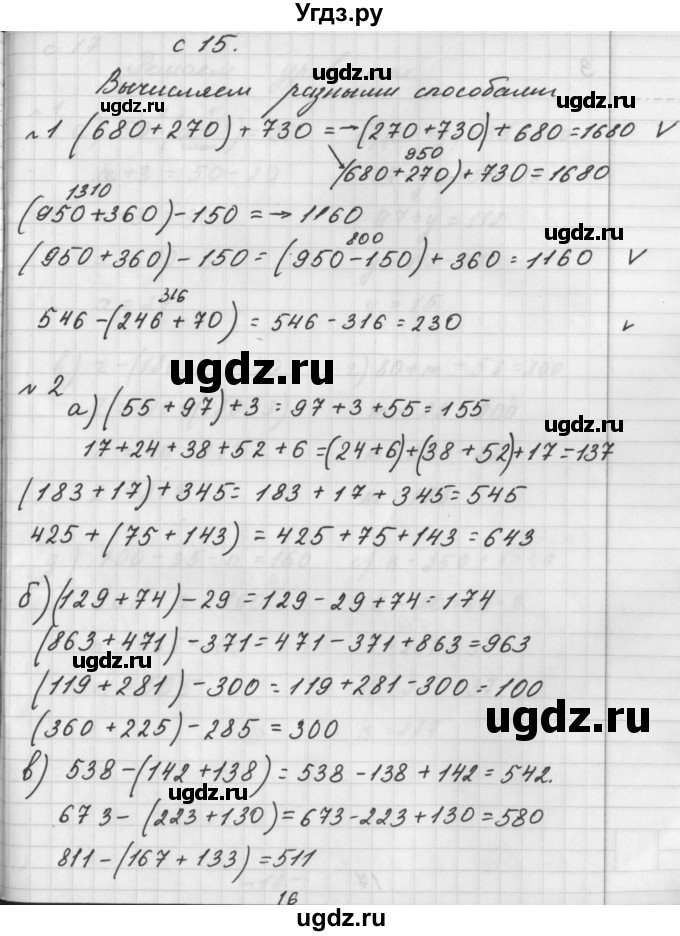 Угдз.ру
с 15.
ugdz.ru ugdz.ru
Вычисляем разными способами
№1 (680+270)+730 =→(270+730)+680=1680 ✓
ugdz.ru
950
(680+270)+730=1680
1310
(950+360)-150=→1160
800
(950+360)-150=(950-150)+360=1160 ✓
ugdz.ru
316
546-(246+70)=546-316=230 ✓
ugdz.ru ugdz.ru
№2
а)(55+97)+3=97+3+55=155
ugdz.ru
17+24+38+52+6=(24+6)+(38+52)+17=137
(183+17)+345=183+17+345=545
ugdz.ru
425+(75+143)=425+75+143=643
ugdz.ru
б)(129+74)-29=129-29+74=174
(863+471)-371=471-371+863=963
ugdz.ru
(119+281)-300=119+281-300=100
ugdz.ru
(360+225)-285=300
в) 538-(142+138)=538-138+142=542.
ugdz.ru
673-(223+130)=673-223+130=580
811-(167+133)=511
16
ugdz.ru